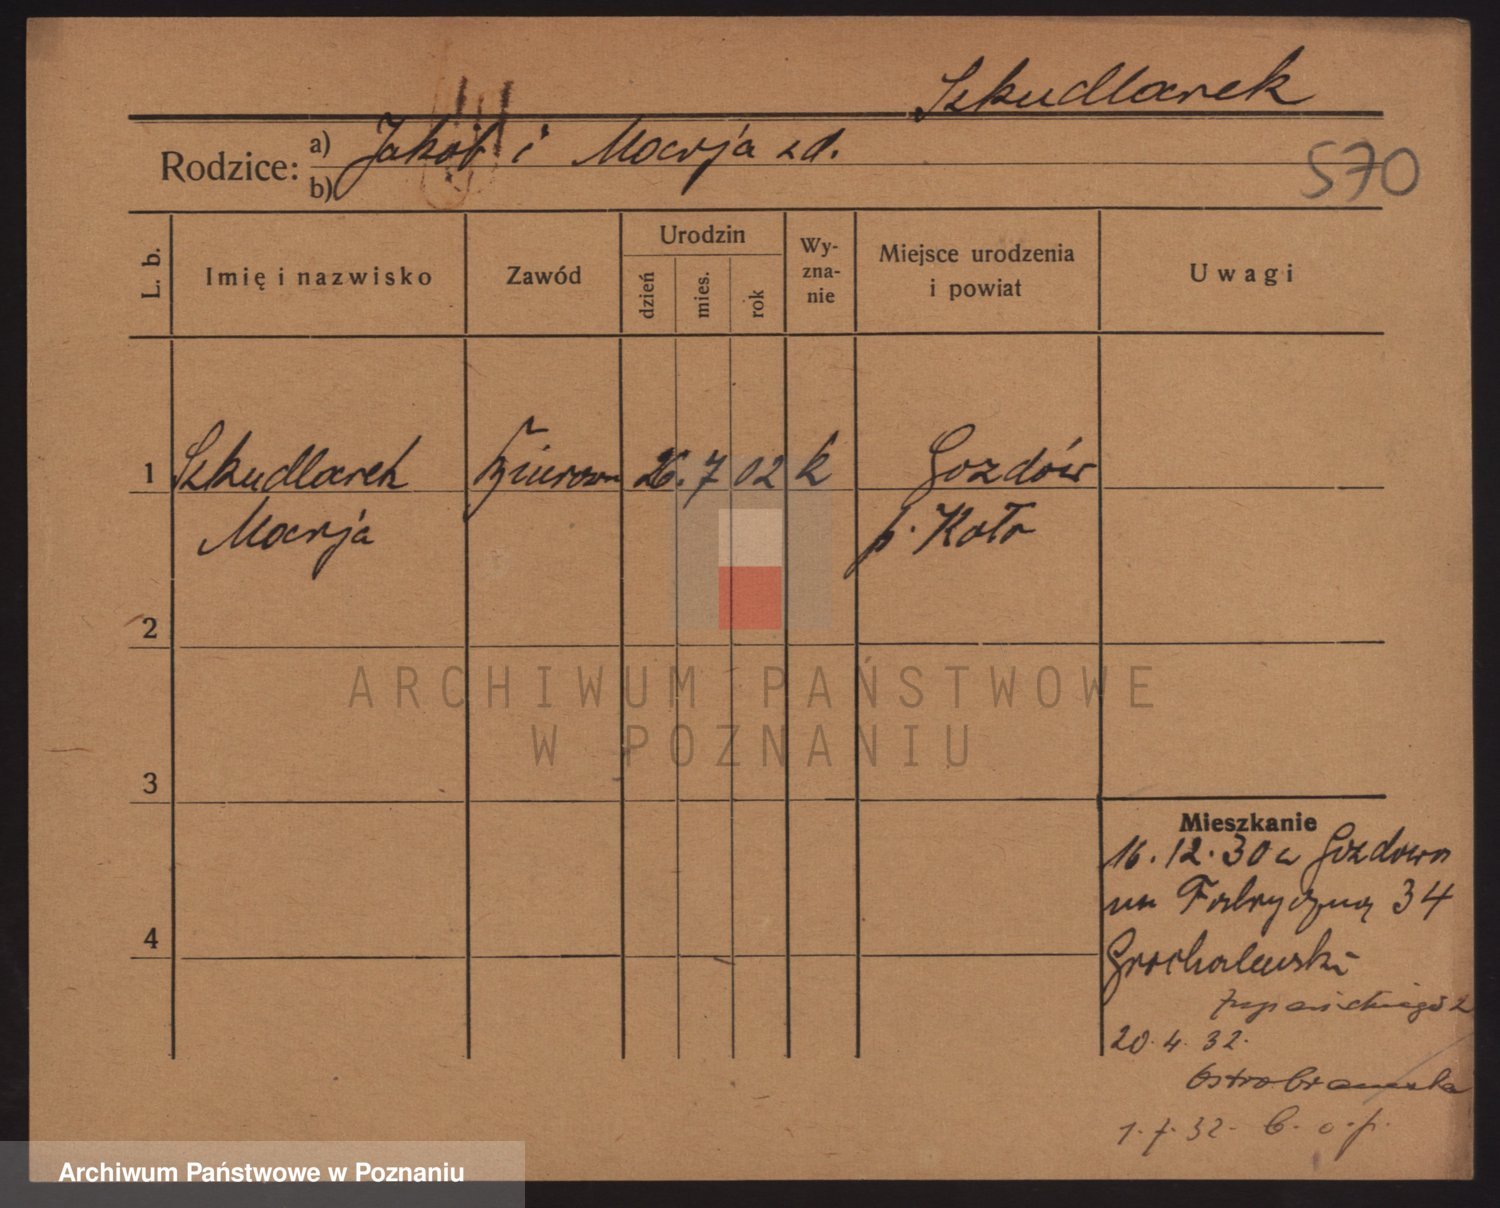 Szkudlarek
Rodzice:
a) Jakób i Marja zd.
b)
570
L. b.
Imię i nazwisko
Zawód
Urodzin
dzień
mies.
rok
Wy-
zna-
nie
Miejsce urodzenia
i powiat
Uwagi
1 Szkudlarek 26. 7 02 k Gozdów
Marja p. Koło
2
3
4
ARCHIWUM PAŃSTWOWE
W POZNANIU
Mieszkanie
16.12.30 z Gozdowa
na Fabryczną 34
Grochalewski
20.4.32.
Ostrobramska
1.7.32.
Archiwum Państwowe w Poznaniu